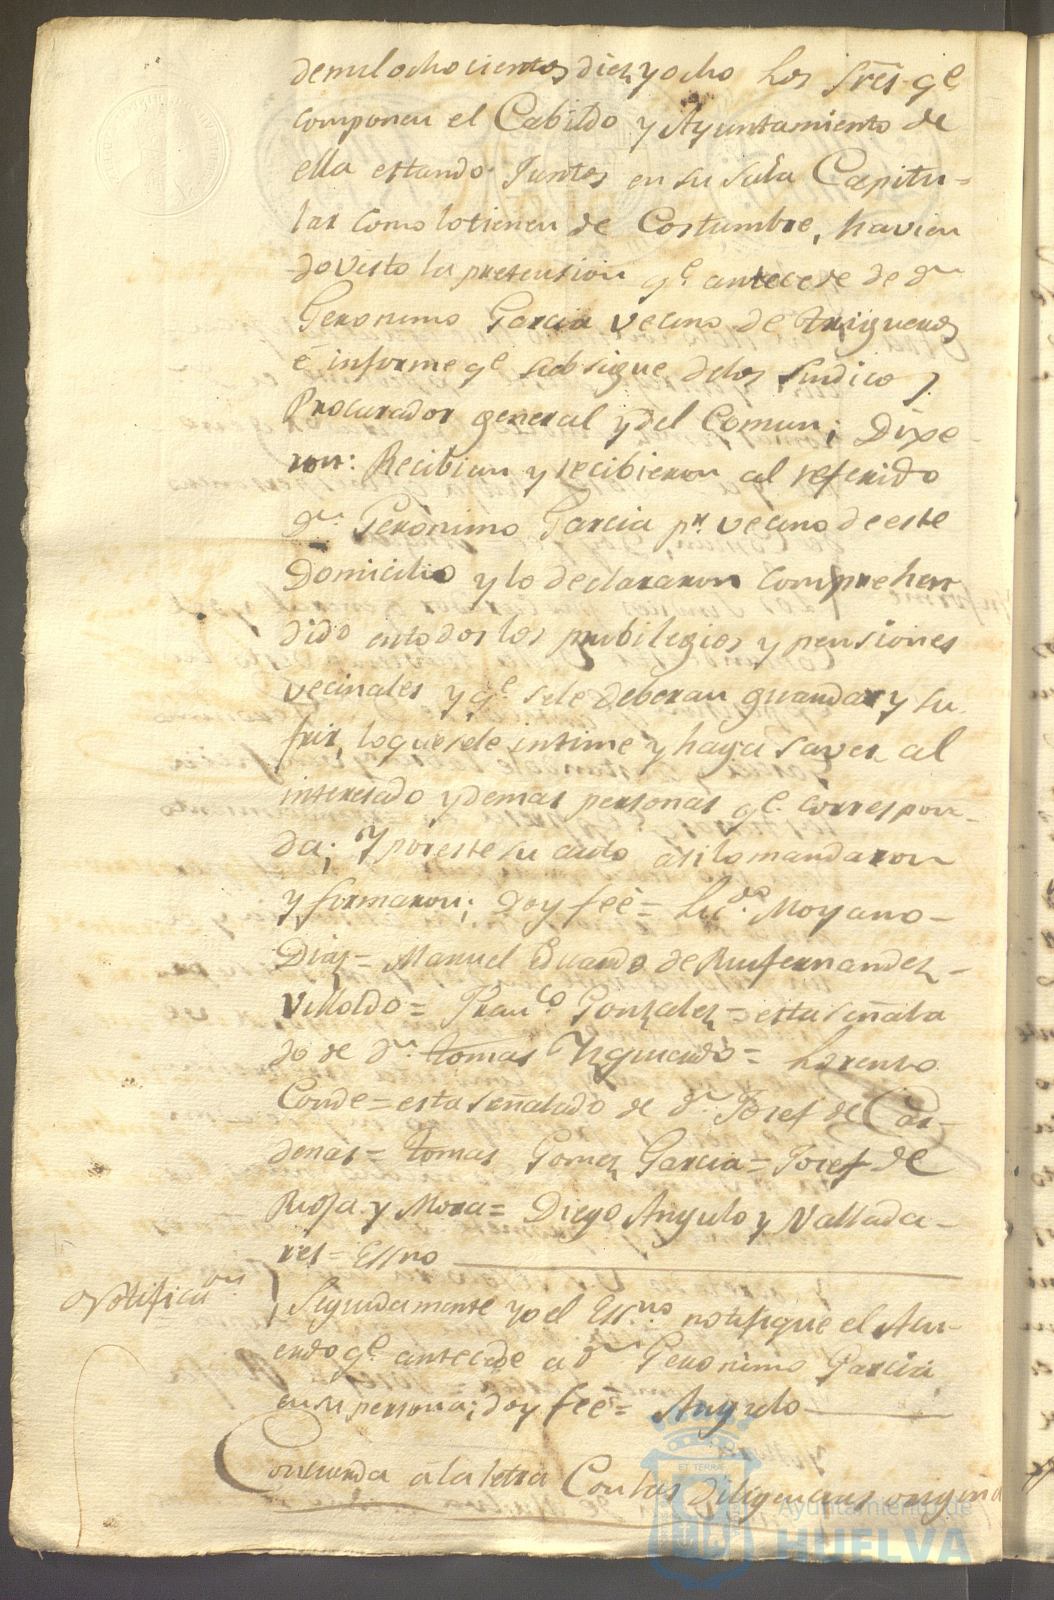 demil ocho cientos diez y ocho Los Sres. qe
componen el Cabildo y Ayuntamiento de
ella estando Juntos en su Sala Capitu=
lar como lo tienen de Costumbre, havien
do visto la pretension qe. antecede de dn
Geronimo Garcia vecino de trigueros
é informe qe subsigue delos Sindico y
Procurador general y del Comun; Dixe-
ron: Recibian y recibieron al referido
dn. Geronimo Garcia pr. vecino de este
Domicilio y lo declararon comprehen
dido en todos los pribilegios y pensiones
vecinales y qe. sele deberan guardar y su
frir, lo que sele intime y haga saver al
interesado y demas personas qe. correspon-
da; Y por este su auto asi lo mandaron
y firmaron; doy feé= Licdo. Moyano=
Diaz= Manuel Eduardo de Rus fernandez=
Villoldo= Franco. Gonzalez= esta señala
do de dn. tomas Yzquierdo= Lorenzo
Conde= esta señalado de dn. Josef de Car-
denas= tomas Gomez Garcia= Josef de
Rioja y Mora= Diego Angulo y Vallada-
res= Essno
Notificon.
Seguidamente yo el Essno. notifique el Acu-
erdo qe. antecede a dn Geronimo Garcia
en su persona; doy feé= Angulo
Concuerda a la letra Con las diligencias origina
ET TERRAE
Ayuntamiento de
HUELVA